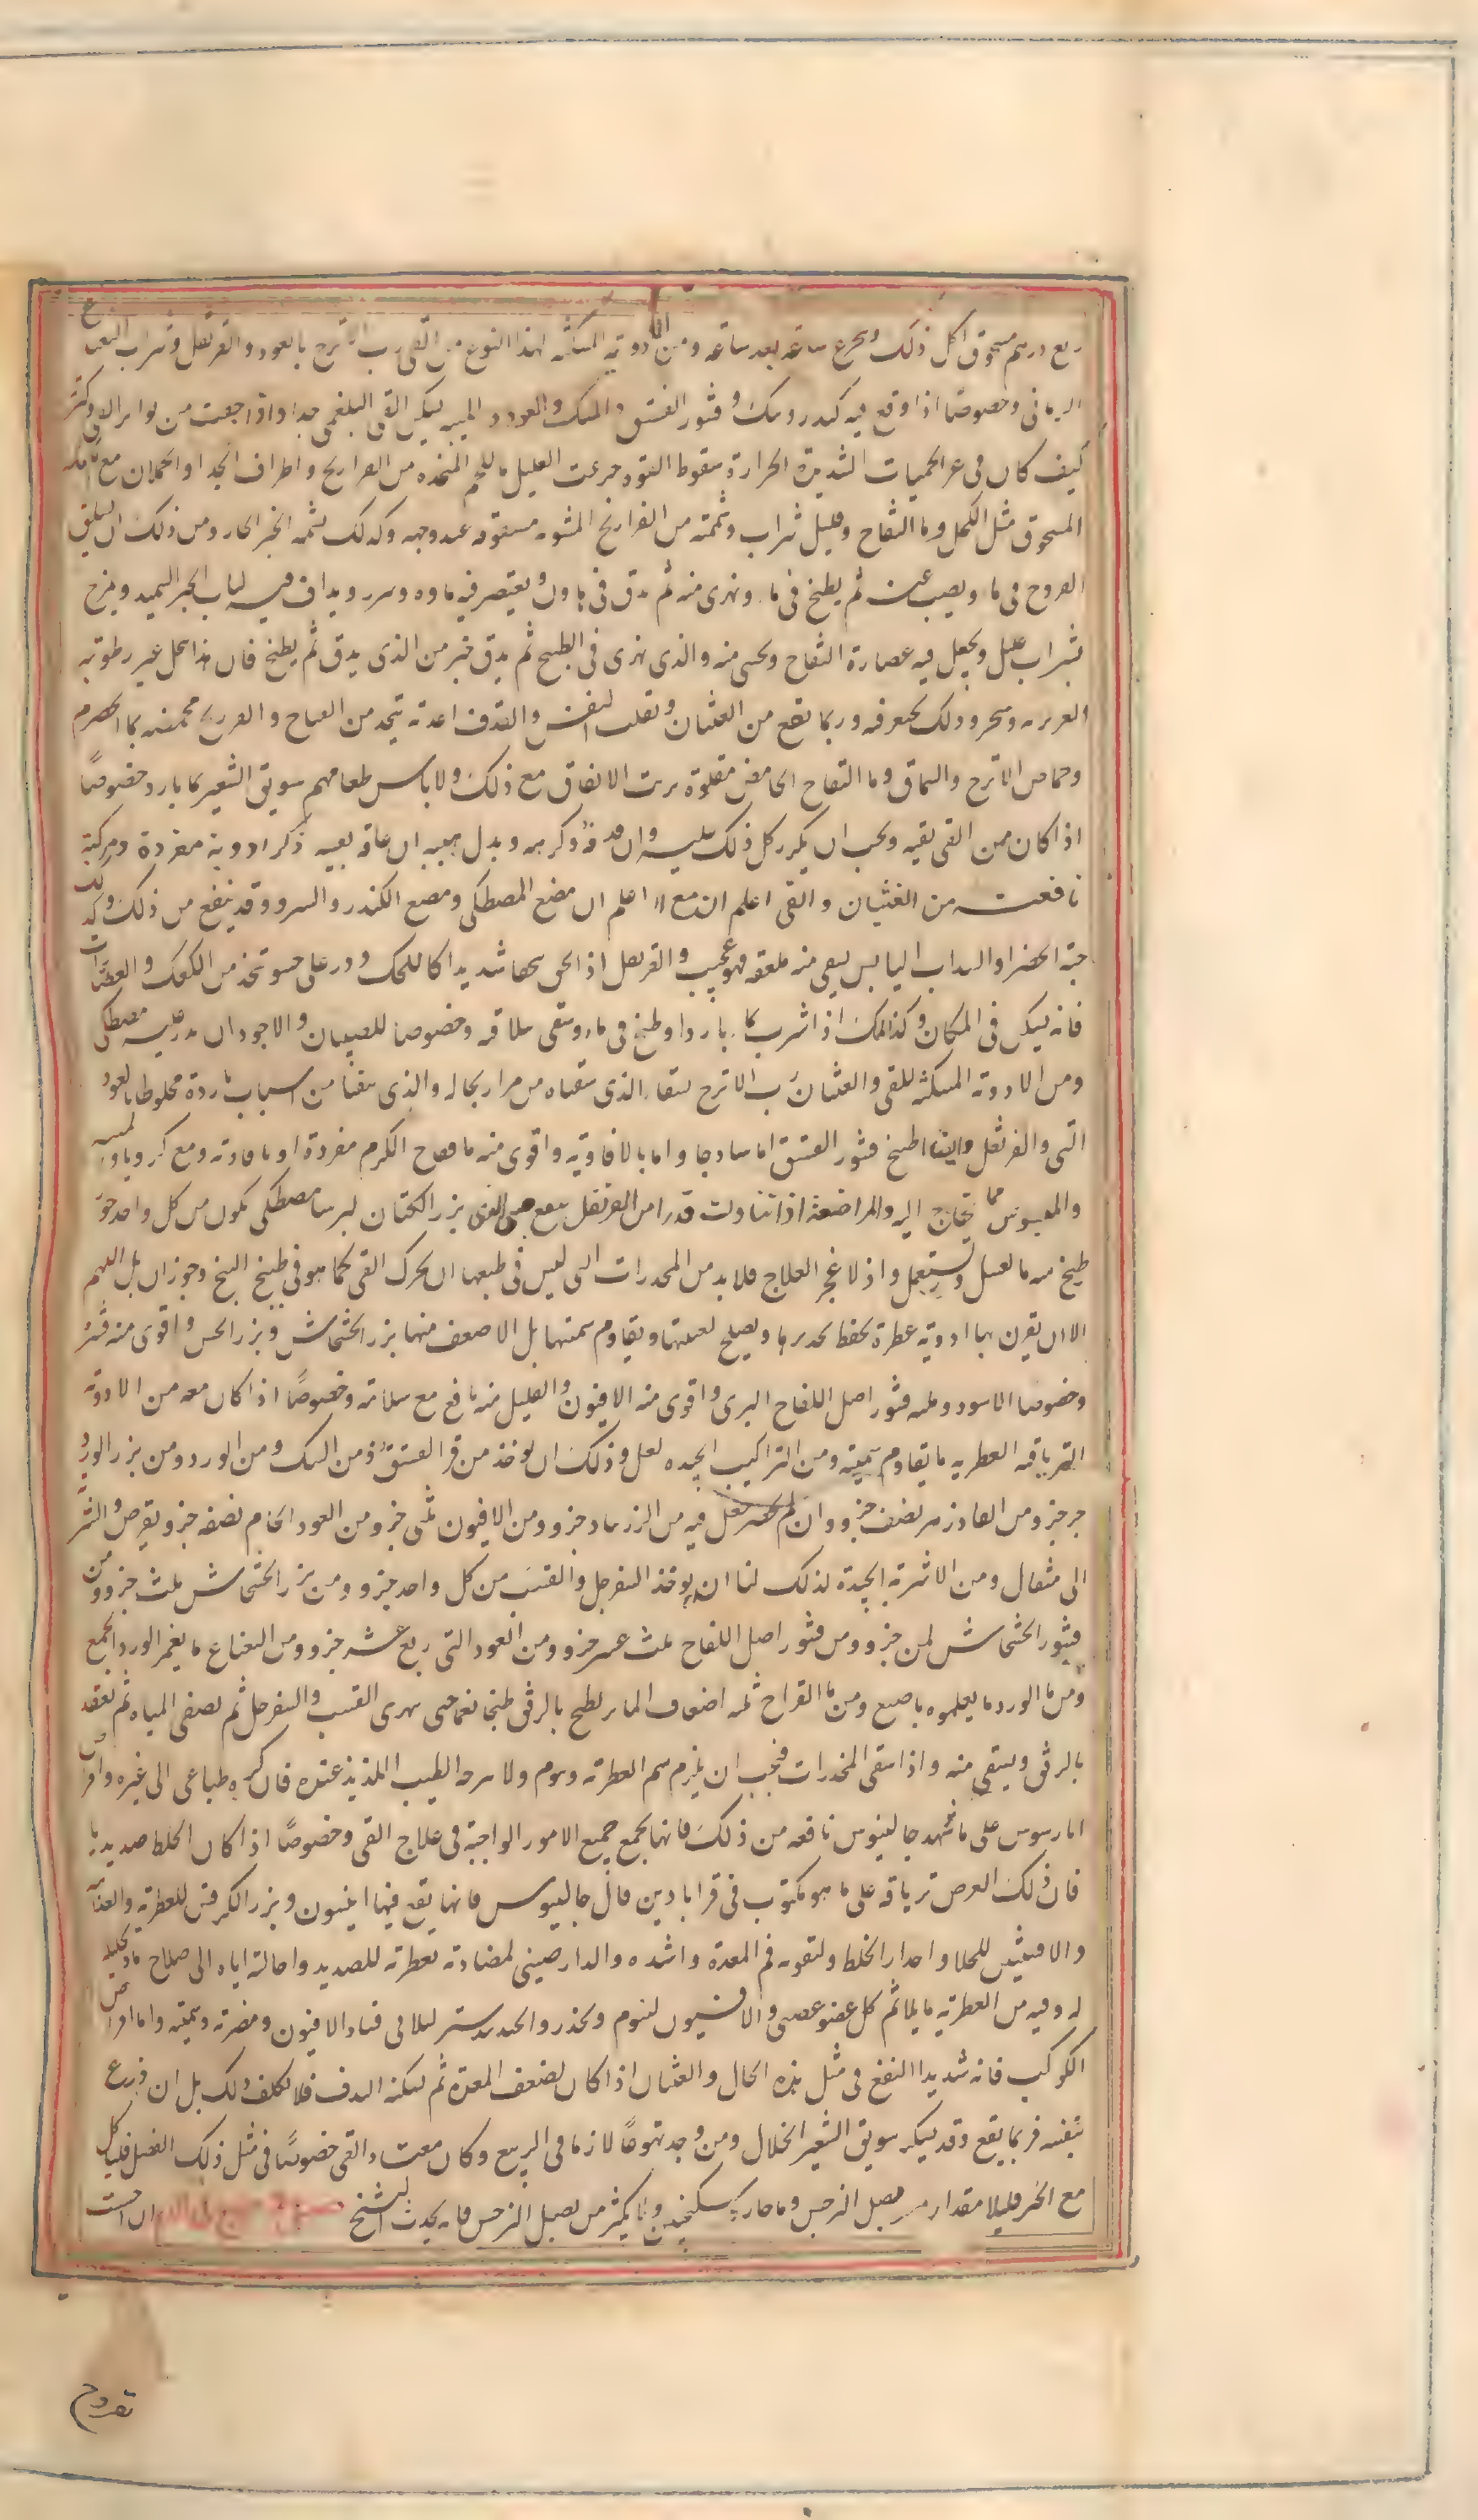 ربع درهم مسحوق اكل ذلك ويجرع ساعة بعد ساعة ومن الادوية المسكنة لهذا النوع من القى رب الاترج بالعود والقرنفل وشراب النعناع
الرمانى وخصوصًا اذا وقع فيه كندر وسك وقشور الفستق والمسك والعود والميبه ليسكن القى البلغمى جدا واذا خفت من تواتر القى وكثرته
كيف كان فى غير الحميات الشديدة الحرارة سقوط القوة جرعت العليل ماء اللحم المتخذ من الفراريج واطراف الجدا والحملان مع الكعك
المسحوق مثل الكحل وماء التفاح وقليل شراب وشممته من الفراريج المشوية مشقوقة عند وجهه وكذلك تشمه الخبز الحار ومن ذلك ان يسلق
الفروج فى ماء ويصب عنه ثم يطبخ فى ماء ويهرى منه ثم يدق فى هاون ويعتصر فيه ماوه ويبرد ويداف فيه لباب الخبز السميد ويمزج
بشراب قليل ويجعل فيه عصارة التفاح ويحسى منه والذى يهرى فى الطبخ ثم يدق خير من الذى يدق ثم يطبخ فان هذا يتحلل عنه رطوبته
الغريزية وتتبخر وذلك يحتقن فيه وربما نفع من الغثيان وتقلب النفس والقذف اغدية تتخذ من القباج والفراريج محمضة بماء الحصرم
وحماض الاترج والسماق وماء التفاح الحامض مقلوة بزيت الانفاق مع ذلك ولا باس بطعامهم سويق الشعير بماء بارد خصوصًا
اذا كان من القى بقيه ويجب ان يكرر كل ذلك عليه وان قذفه وكرهه ويبدل هيئته ان عافه بعينه ذكر ادوية مفردة ومركبة
نافعة من الغثيان والقى اعلم ان مع اعلم ان مضغ المصطكى ومضغ الكندر والسرو وقد ينفع من ذلك وكذلك
حبة الخضرا والسداب اليابس يسقى منه ملعقة فهو عجيب والقرنفل اذا سحق سحقا شديدا كالكحل وذر على حسو تتخذ من الكعك والعصارات
فانه يسكن فى المكان وكذلك اذا شرب بماء بارد او طبخ فى ماء وسقى سلاقته وخصوصا للصبيان والاجود ان يذر عليه مصطكى
ومن الادوية المسكنة للقى والغثيان رب الاترج يسقاه الذى يتقياه من مرار بحاله والذى يتقيا من اسباب باردة مخلوطا بالعود
النى والقرنفل وايضا طبيخ قشور الفستق اما ساذجا واما بالافاويه واقوى منه ماء فقاح الكرم مفردة او بافاويه ومع كرويا ولميبه
والميسوس مما يحتاج اليه والمراضعة اذا تناولت قدرا من القرنفل نفع صبيى القى بزر الكتان ايرسا مصطكى يكون من كل واحد جزء
طبخ منه ماء العسل ويستعمل واذا لم ينجع العلاج فلا بد من المخدرات التى ليس فى طبعها ان يحرك القى كما هو فى طبيخ البنج وجوز ماثل اللهم
الا ان يقرن بها ادوية عطرة يحفظ تخديرها ويصلح لغثيانها ويقاوم سمتها بل الاضعف منها بزر الخشخاش وبزر الخس واقوى منه قشره
وخصوصا الاسود ومثله قشور اصل اللفاح البرى واقوى منه الافيون والقليل منه نافع مع سلامته وخصوصًا اذا كان معه من الادوية
الترياقية العطرية ما يقاوم سميته ومن التراكيب الجيدة لعل وذلك ان يوخذ من قشر الفستق ومن السك ومن الورد ومن بزر الورد
جزء جزء ومن الفادزهر نصف جزء وان لم يحضر جعل فيه من الزرنباد جزء ومن الافيون ثلثى جزء ومن العود الخام نصف جزء ويقرص والشربة
الى مثقال ومن الاشربة الجيدة لذلك لنا ان يوخذ السفرجل والقسب من كل واحد جزء ومن بزر الخشخاش ثلث جزء ومن
قشور الخشخاش ثمن جزء ومن قشور اصل اللفاح ثلث عشر جزء ومن العود النى ربع عشر جزء ومن النعناع ما يغمر الورد الجمع
ومن ماء الورد ما يعلوه باصبع ومن ماء القراح ثلثة اضعاف الماء يطبخ بالرفق طبخا ناعما حتى يهرى القسب والسفرجل ثم يصفى المياه ثم يعقد
بالرفق ويسقى منه واذا سقى المخدرات فيجب ان يلزم شم العطرية وينوم ولا يبرح الطيب اللذيذ عنده فان كره طباعى الى غيره واقراص
امارسوس على ما شهد جالينوس نافعه من ذلك فانها يجمع جميع الامور الواجبة فى علاج القى وخصوصًا اذا كان الخلط صديديا
فان ذلك القرص ترياقه على ما هو مكتوب فى قرابادين قال جالينوس فانها يقع فيها انيسون وبزر الكرفس للعطرية والغذائيه
والافسنتين للجلاء واحدار الخلط ولتقوية فم المعدة واشده والدارصينى لمضادته بعطرته للصديد واحالته اياه الى صلاح ما وتحليله
له وفيه من العطرية ما يلائم كل عضو عصبى والافيون لينوم ويخدر والجندبيدستر ليلافى فساد الافيون ومضرته وسميته واما اقراص
الكوكب فانه شديدا النفع فى مثل هذه الحال والغثيان اذا كان لضعف المعدة ثم يسكنه القذف فلا تكلف ذلك بل ان ذرع
بنفسه فربما نفع وقد يسكنه سويق الشعير الحلال ومن وجد تهوعًا لازما فى الربيع وكان معتاد القى خصوصًا فى مثل ذلك الفصل فلياكل
مع الخبز قليلا مقدار من بصل النرجس وماء حار وسكنجبين ولا يكثر من بصل النرجس فانه يحدث التشنج ان احست
تفروح